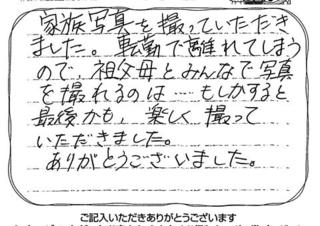 家族写真を撮っていただき
ました。転勤で離れてしまう
ので、祖父母とみんなで写真
を撮れるのは……もしかすると
最後かも、楽しく撮って
いただきました。
ありがとうございました。
ご記入いただきありがとうございます